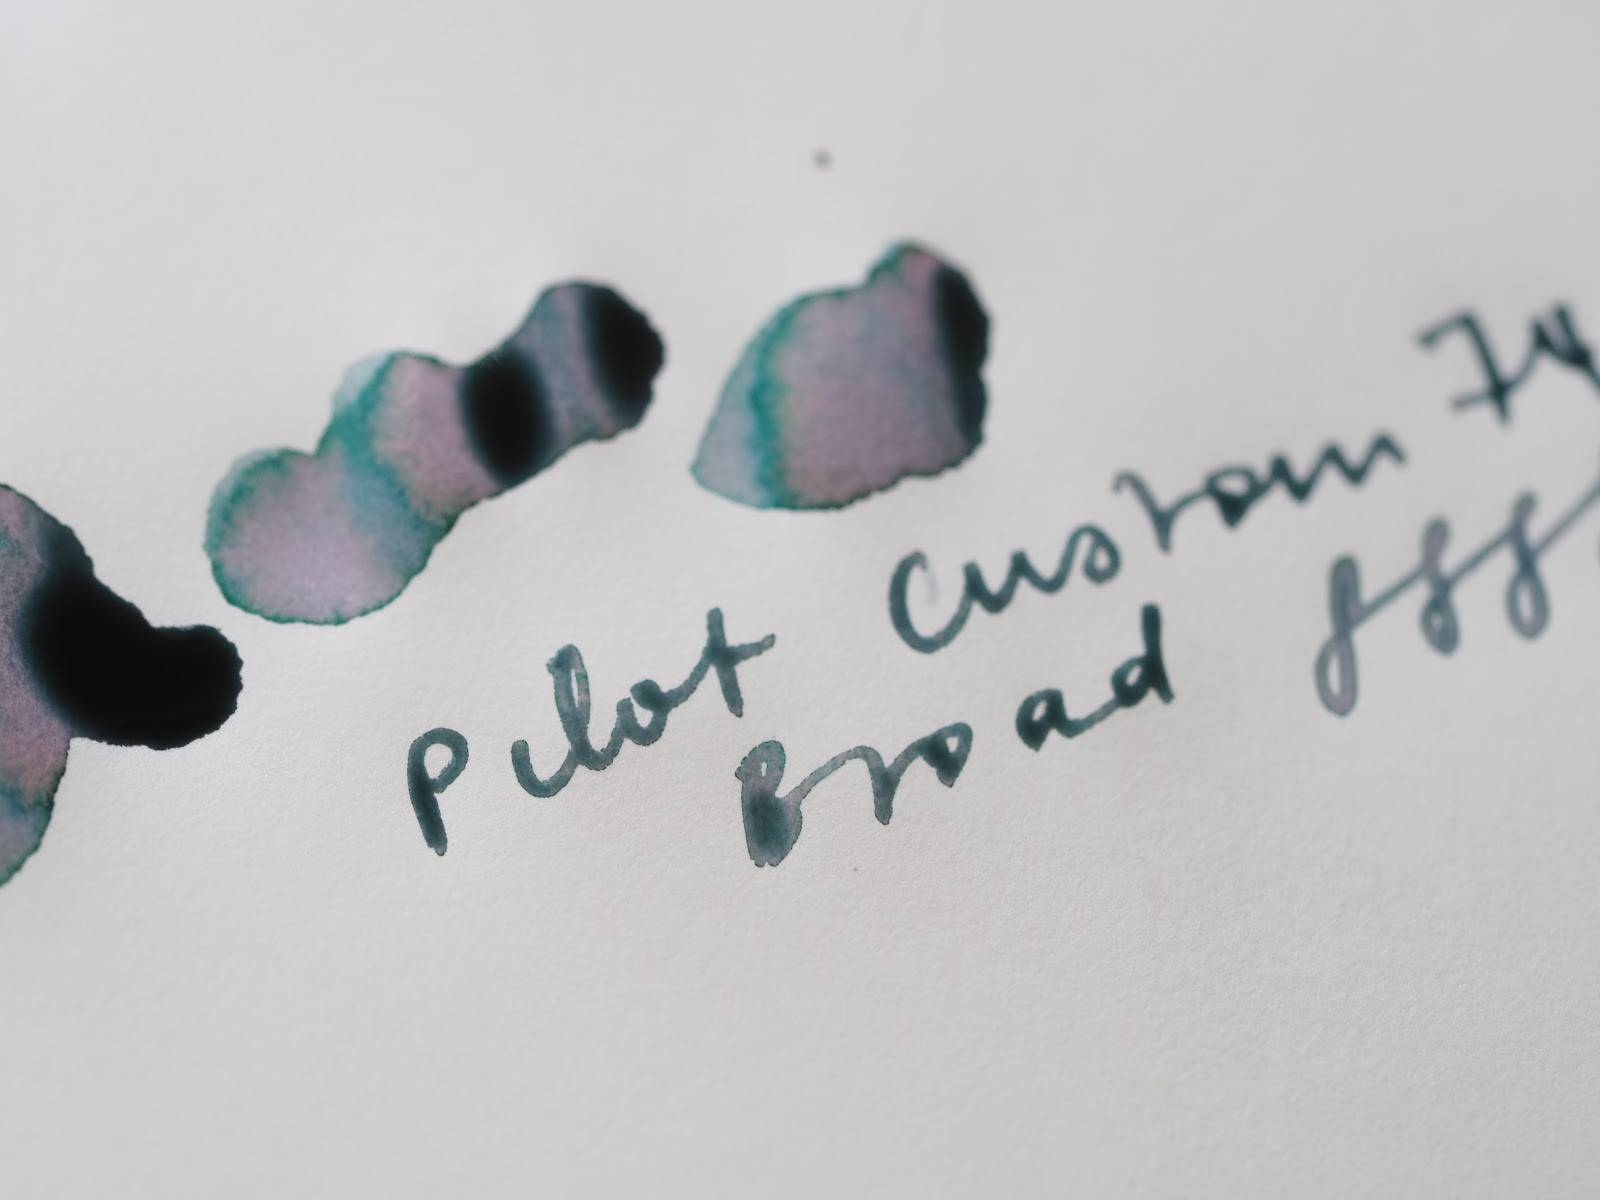 Pilot Custom 74
Broad